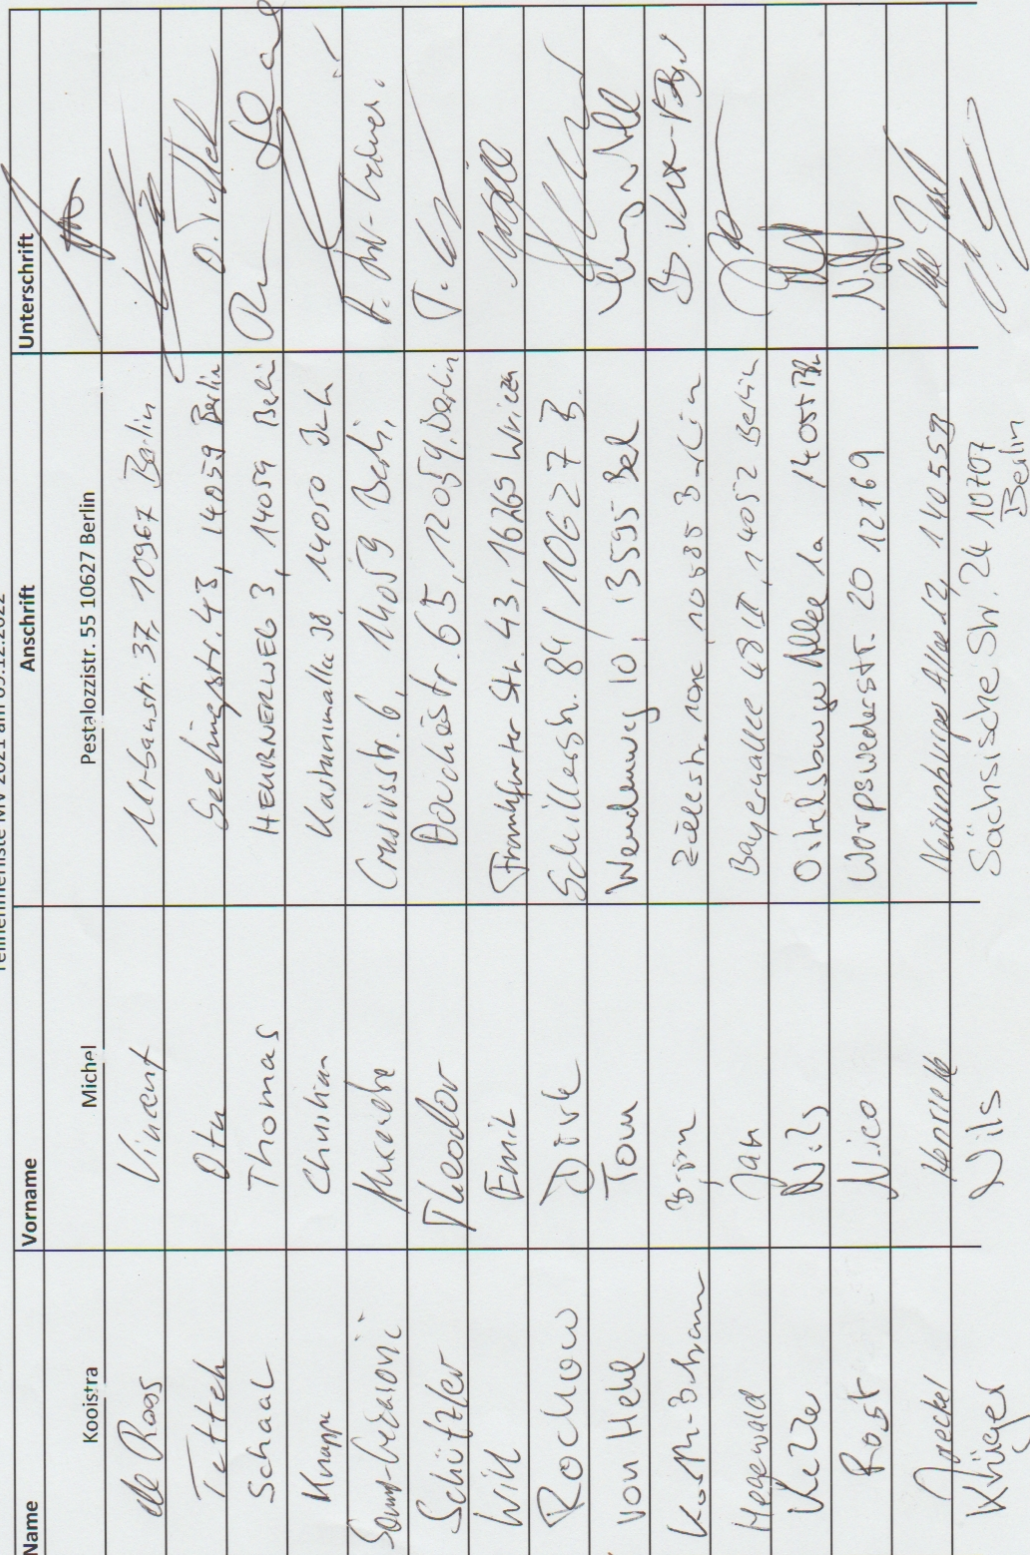 Teilnehmerliste MV 2021 am 05.12.2022
Name Vorname Anschrift Unterschrift
Kooistra Michel Pestalozzistr. 55 10627 Berlin
de Roos Vincent Urbanstr. 37 10967 Berlin
Tetteh Otu Seelingstr. 43, 14059 Berlin O. Tetteh
Schaal Thomas HEUBNERWEG 3, 14059 Berlin
Knappe Christian Kastanienallee 38, 14050
Crusiusstr. 6, 14059 Berl.
Schützler Theodor 65, 12059, Berlin
Will Emil Frankfurter Str. 43, 16269 Wriezen
Rochow Dirk Schillerstr. 84 / 10627 B.
von Hehl Tom Wendenweg 10, 13595 Berl
Björn Zillestr. 10585 Berlin
Hegewald Jan Bayernallee 48 14052 Berlin
Nils Allee 1a 14055 Bln
Rost Nico Worpsweder Str. 20 12169
Jaeckel Allee 12, 14055
Krüger Nils Sächsische Str. 24 10707
Berlin